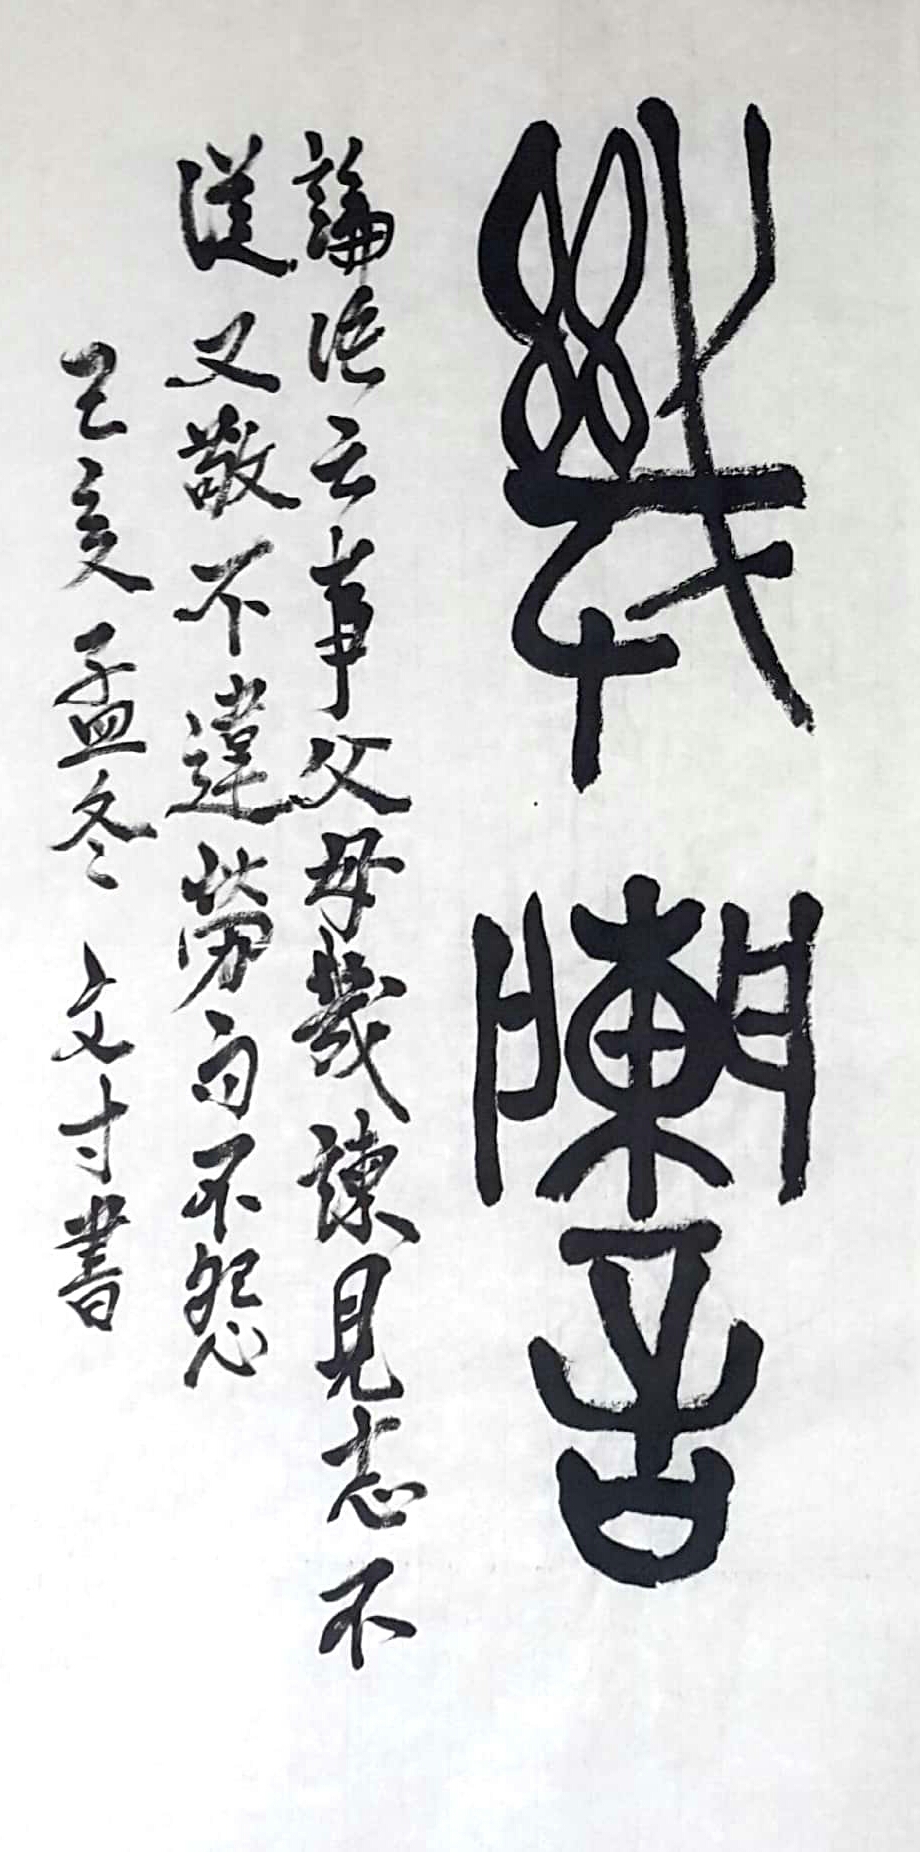 幾諫
論語云事父母幾諫見志不
從又敬不違勞而不怨
己亥孟冬 文寸書